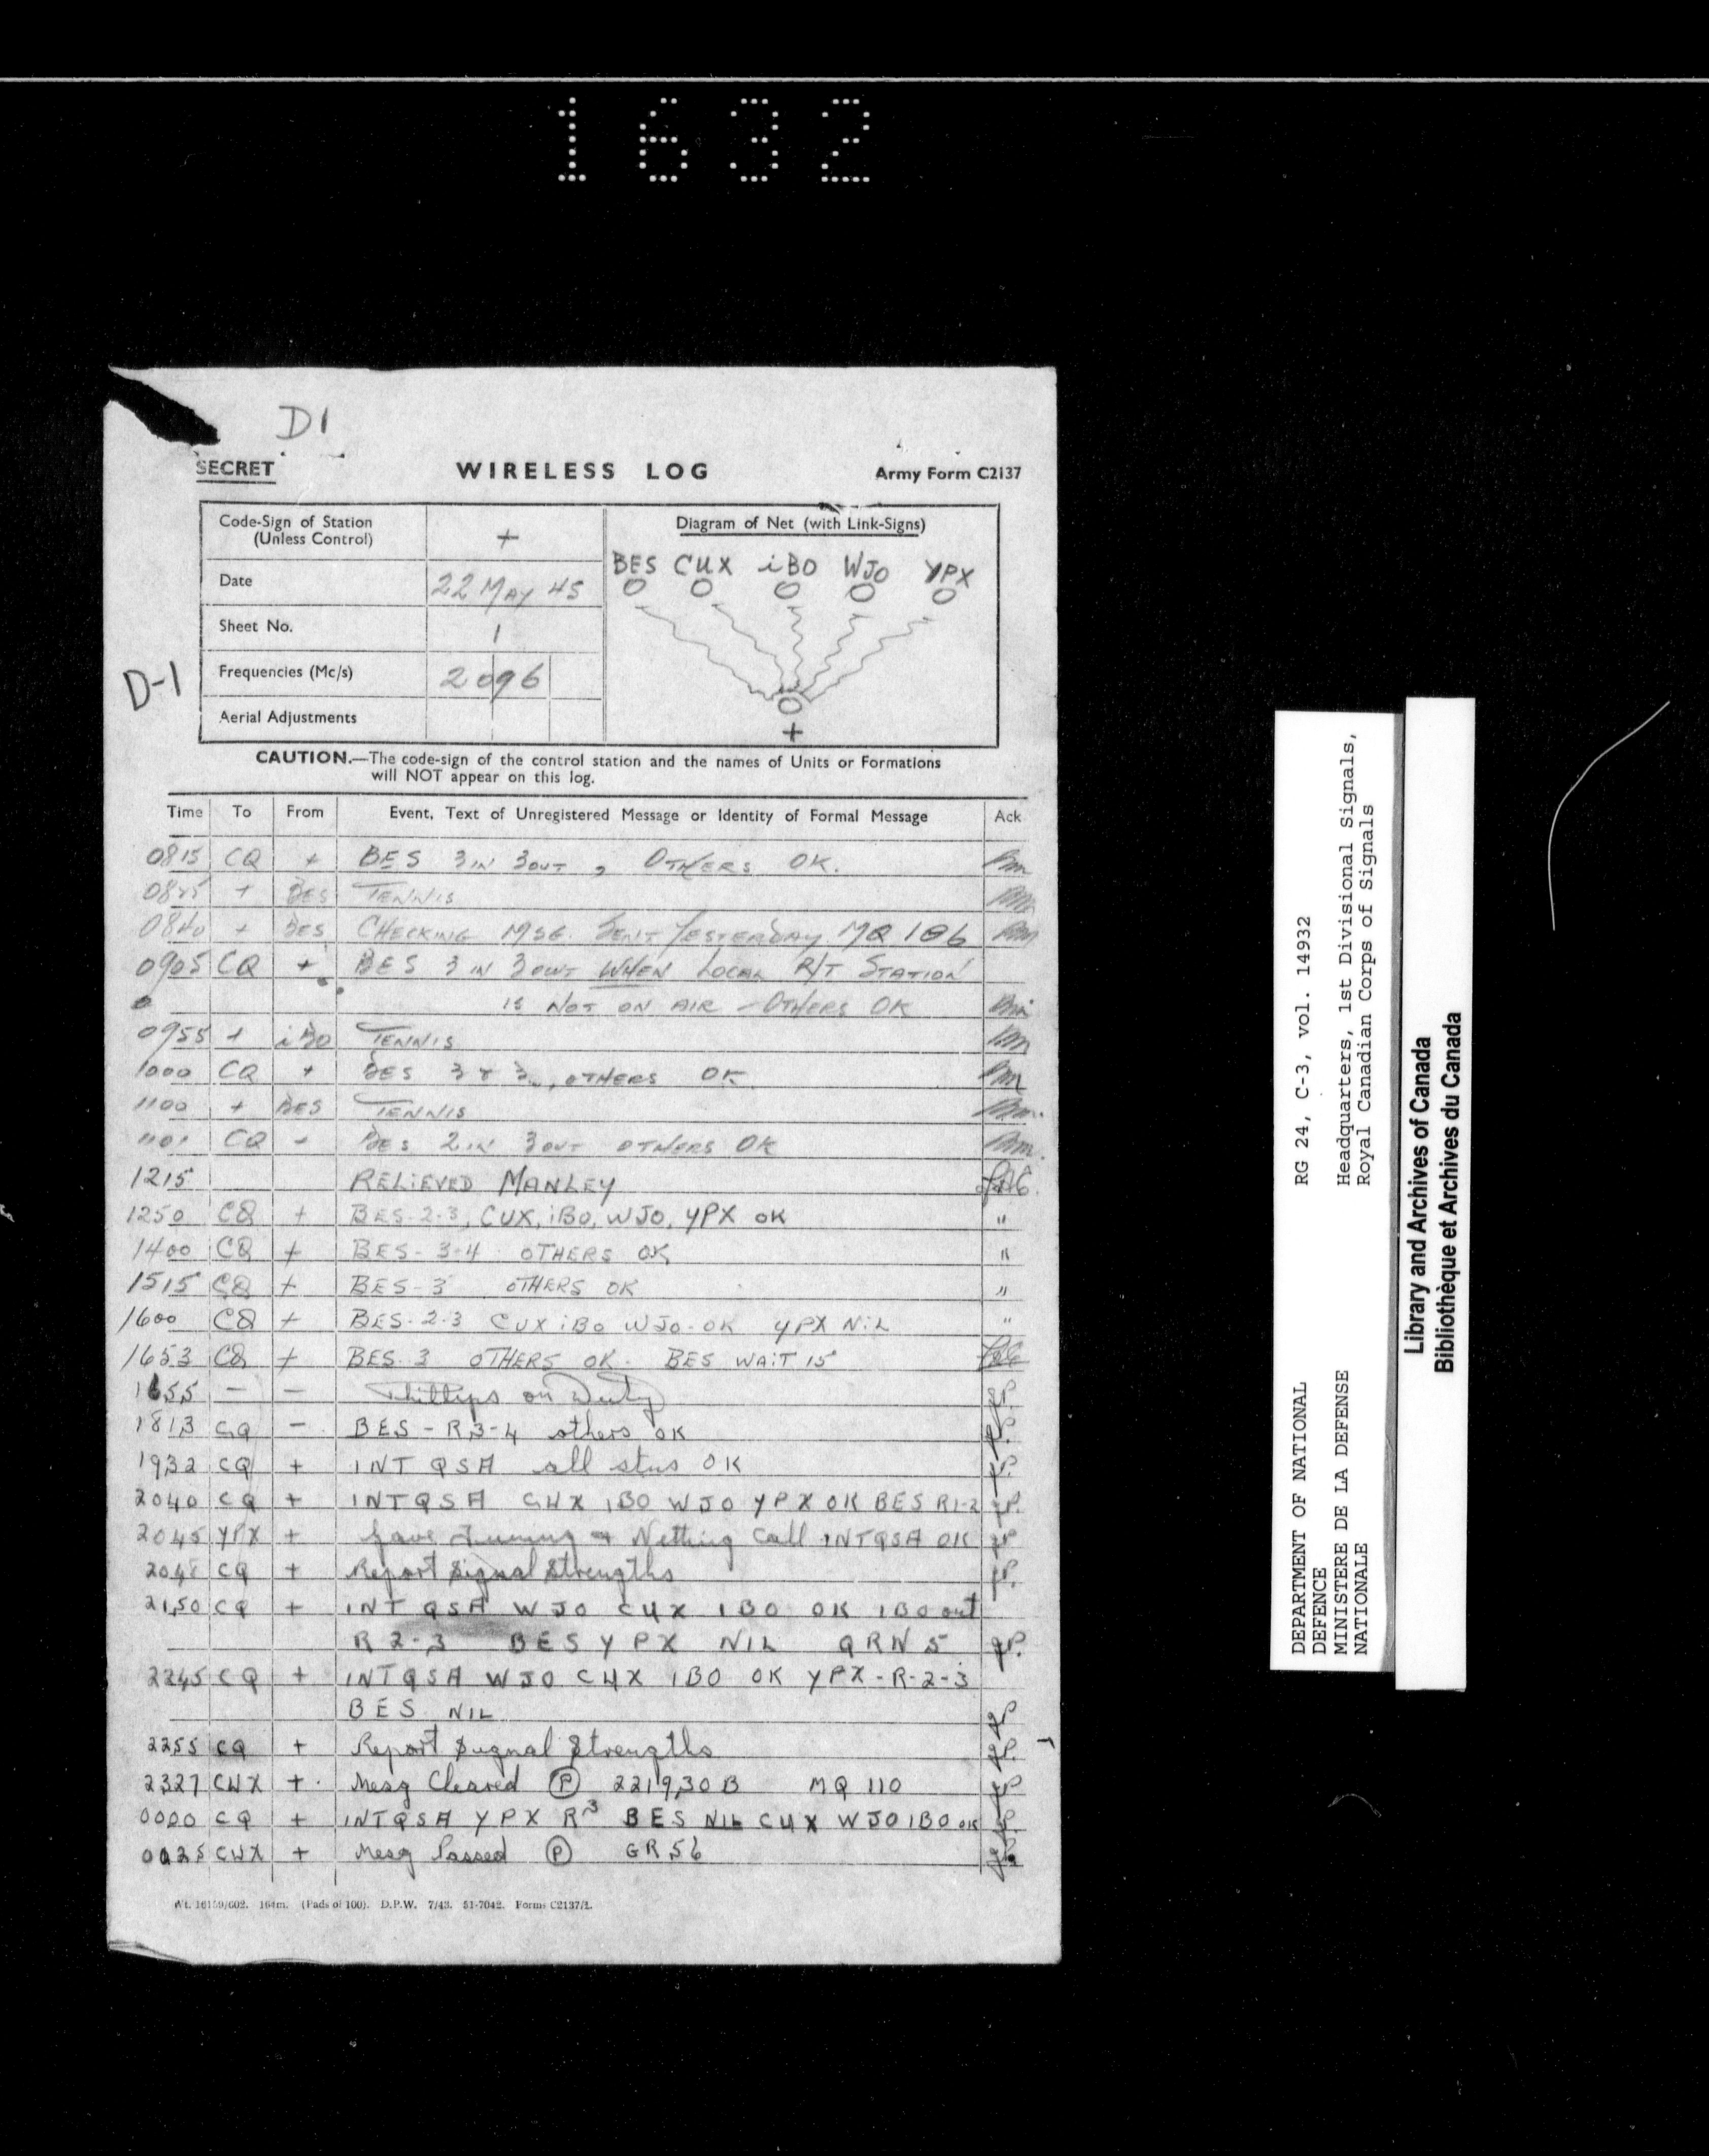 1632
D1
SECRET WIRELESS LOG Army Form C2137
Code-Sign of Station
(Unless Control) +
Date 22 MAY 45
Sheet No. 1
Frequencies (Mc/s) 2096
Aerial Adjustments
Diagram of Net (with Link-Signs)
BES CUX iBO WJO YPX
+
D-1
CAUTION.—The code-sign of the control station and the names of Units or Formations
will NOT appear on this log.
Time To From Event, Text of Unregistered Message or Identity of Formal Message Ack
0815 CQ + BES 3 IN 3 OUT, OTHERS OK.
+ BES TENNIS
0840 + BES CHECKING MSG. SENT YESTERDAY MQ 106
0905 CQ + BES 3 IN 3 OUT WHEN LOCAL R/T STATION
IS NOT ON AIR - OTHERS OK
0955 + iBO TENNIS
1000 CQ + BES 3 & 3, OTHERS OK
1100 + BES TENNIS
1101 CQ - BES 2 IN 3 OUT OTHERS OK
1215 RELIEVED MANLEY
1250 CQ + BES-2-3, CUX, iBO, WJO, YPX OK "
1400 CQ + BES-3-4 OTHERS OK "
1515 CQ + BES-3 OTHERS OK "
1600 CQ + BES-2-3 CUX iBO WJO-OK YPX NiL "
1653 CQ + BES-3 OTHERS OK. BES WAiT 15
1655 — — Phillips on Duty JP.
1813 CQ - BES - R3-4 others OK JP.
1932 CQ + INT QSA all stns OK JP.
2040 CQ + INT QSA CUX IBO WJO YPX OK BES R1-2 JP.
2045 YPX + Gave Tuning & Netting Call INTQSA OK JP
2048 CQ + Report Signal Strengths JP.
2150 CQ + INT QSA WJO CUX IBO OK IBO out
R 2-3 BES YPX NIL QRN 5 JP.
2245 CQ + INTQSA WJO CUX IBO OK YPX-R-2-3
BES NIL JP
2255 CQ + Report Signal Strengths JP.
2327 CUX + Mesg Cleared (P) 221930B MQ 110 JP
0000 CQ + INTQSA YPX R3 BES NIL CUX WJO IBO OK JP.
0025 CUX + Mesg Passed (P) GR 56 JP
Wt. 16159/602. 164m. (Pads of 100). D.P.W. 7/43. 51-7042. Forms C2137/1.
DEPARTMENT OF NATIONAL
DEFENCE
MINISTERE DE LA DEFENSE
NATIONALE
RG 24, C-3, vol. 14932
Headquarters, 1st Divisional Signals,
Royal Canadian Corps of Signals
Library and Archives of Canada
Bibliothèque et Archives du Canada